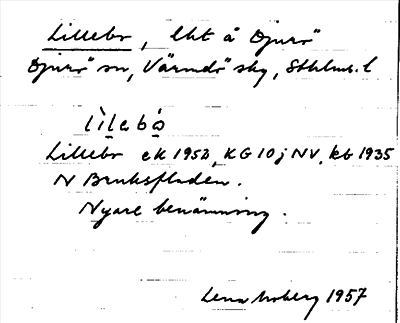 Lillebo, lht å Djurö
Djurö sn, Värmdö skg, Sthlms. l
lìlebó
Lillebo ek 1952, KG 10 j NV, kb 1935
N Bruksfladen.
Nyare benämning.
Lena Moberg 1957